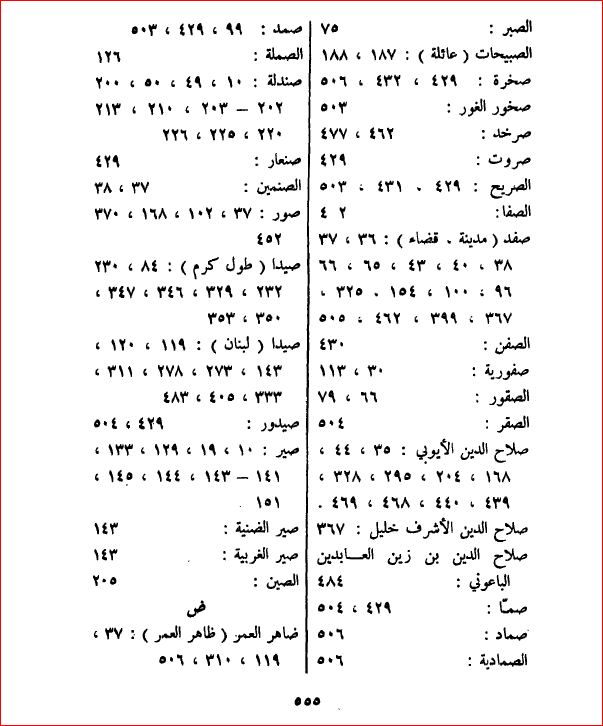 الصبر : ٧٥
الصبيحات ( عائلة ) : ١٨٧ ، ١٨٨
صخرة : ٤٢٩ ، ٤٣٢ ، ٥٠٦
صخور الغور : ٥٠٣
صرخد : ٤٦٢ ، ٤٧٧
صروت : ٤٢٩
الصريح : ٤٢٩ ، ٤٣١ ، ٥٠٣
الصفا : ٢ ٤
صفد ( مدينة . قضاء ) : ٣٦ ، ٣٧
٣٨ ، ٤٠ ، ٤٣ ، ٦٥ ، ٦٦
٩٦ ، ١٠٠ ، ١٥٤ . ٣٢٥ .
٣٦٧ ، ٣٩٩ ، ٤٦٢ . ٥٠٥
الصفن : ٤٣٠
صفورية : ٣٠ ، ١١٣
الصقور : ٦٦ ، ٧٩
الصقر : ٥٠٤
صلاح الدين الأيوبي : ٣٥ ، ٤٤ ،
١٦٨ ، ٢٠٤ ، ٢٩٥ ، ٣٢٨ ،
٤٣٩ ، ٤٤٠ ، ٤٦٨ ، ٤٦٩ .
صلاح الدين الأشرف خليل : ٣٦٧
صلاح الدين بن زين العـــابدين
الباعوني : ٤٨٤
صمّا : ٤٢٩ ، ٥٠٤
صماد : ٥٠٦
الصمادية : ٥٠٦
صمد : ٩٩ ، ٤٢٩ ، ٥٠٣
الصملة : ١٢٦
صندلة : ١٠ ، ٤٩ ، ٥٠ ، ٢٠٠
٢٠٢ – ٢٠٣ ، ٢١٠ ، ٢١٣
٢٢٠ ، ٢٢٥ ، ٢٢٦
صنعار : ٤٢٩
الصنمين : ٣٧ ، ٣٨
صور : ٣٧ ، ١٠٢ ، ١٦٨ ، ٣٧٠
٤٥٢
صيدا ( طول كرم ) : ٨٤ ، ٢٣٠
٢٣٢ ، ٣٢٩ ، ٣٤٦ ، ٣٤٧ ،
٣٥٠ ، ٣٥٣
صيدا ( لبنان ) : ١١٩ ، ١٢٠ ،
١٤٣ ، ٢٧٣ ، ٢٧٨ ، ٣١١ ،
٣٣٣ ، ٤٠٥ ، ٤٨٣
صيدور : ٤٢٩ ، ٥٠٤
صير : ١٠ ، ١٩ ، ١٢٩ ، ١٣٣ ،
١٤١ – ١٤٣ ، ١٤٤ ، ١٤٥ ،
١٥١
صير الضنية : ١٤٣
صير الغربية : ١٤٣
الصين : ٢٠٥
ض
ضاهر العمر ( ظاهر العمر ) : ٣٧ ،
١١٩ ، ٣١٠ ، ٥٠٦
٥٥٥